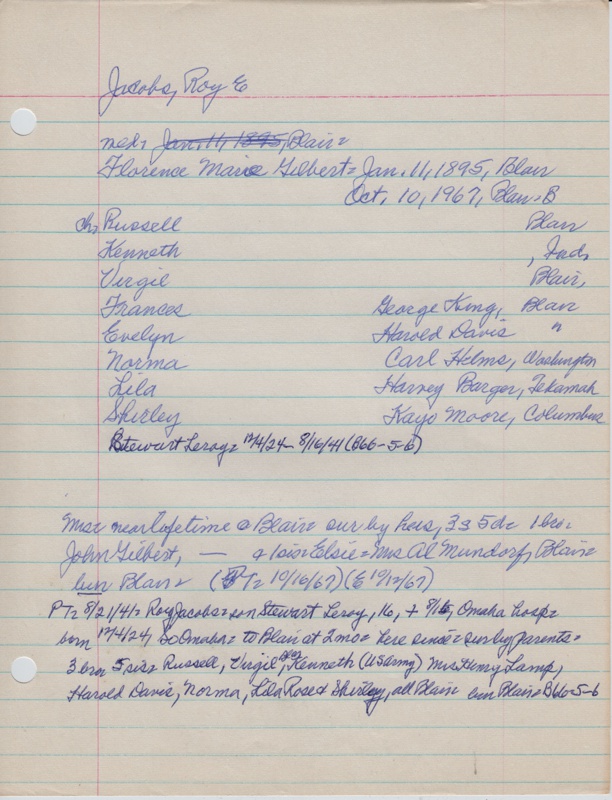 Jacobs, Roy E
med: Jan. 11, 1895, Blair=
Florence Marie Gilbert= Jan. 11, 1895, Blair
Oct. 10, 1967, Blair=B
ch, Russell Blair
Kenneth , Ind,
Virgil Blair,
Frances George King, Blair
Evelyn Harold Davis "
Norma Carl Helms, Washington
Lila Harvey Barger, Tekamah
Shirley Kayo Moore, Columbus
Stewart Leroy= 12/4/24 - 8/16/41 (B66-5-6)
Mrs= near lifetime @ Blair= sur by hus, 3s 5d= 1 bro=
John Gilbert, — + 1 sis= Elsie= Mrs Al Mundorf, Blair=
bur Blair= (PT= 10/16/67) (E 10/12/67)
PT= 8/21/41= Roy Jacobs= son Stewart Leroy, 16, + 8/16, Omaha hosp=
born 12/4/24, So Omaha= to Blair at 2 mo= here since= sur by parents=
3 bro 5 sis= Russell, Virgil, Kenneth (US army) Mrs Henry Lamp,
Harold Davis, Norma, Lila Rose & Shirley, all Blair bur Blair= B66-5-6